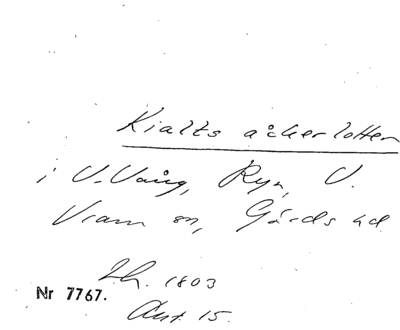 Kialts åkerlotter
i V. Vång, Ryn, V.
Vram sn, Gärds hd
Lh. 1803
Nr 7767.
Akt 15.